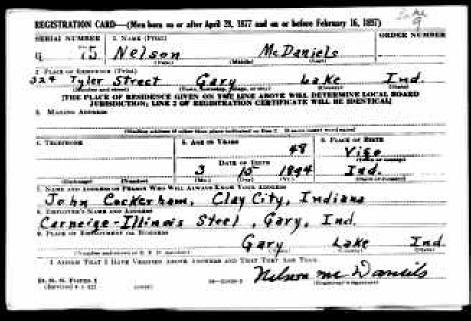 Lake
9
REGISTRATION CARD—(Men born on or after April 28, 1877 and on or before February 16, 1897)
SERIAL NUMBER 1. NAME (Print) ORDER NUMBER
75 Nelson McDaniels
(First) (Middle) (Last)
2. PLACE OF RESIDENCE (Print)
324 Tyler Street Gary Lake Ind.
(Number and street) (Town, township, village, or city) (County) (State)
[THE PLACE OF RESIDENCE GIVEN ON THE LINE ABOVE WILL DETERMINE LOCAL BOARD
JURISDICTION; LINE 2 OF REGISTRATION CERTIFICATE WILL BE IDENTICAL]
3. MAILING ADDRESS
[Mailing address if other than place indicated on line 2. If same insert word same]
4. TELEPHONE 5. AGE IN YEARS 6. PLACE OF BIRTH
48 Vigo
DATE OF BIRTH (Town or county)
3 10 1894 Ind.
(Exchange) (Number) (Mo.) (Day) (Yr.) (State or country)
7. NAME AND ADDRESS OF PERSON WHO WILL ALWAYS KNOW YOUR ADDRESS
John Cockerham, Clay City, Indiana
8. EMPLOYER'S NAME AND ADDRESS
Carneige-Illinois Steel, Gary, Ind.
9. PLACE OF EMPLOYMENT OR BUSINESS
Gary Lake Ind.
(Number and street or R. F. D. number) (Town) (County) (State)
I AFFIRM THAT I HAVE VERIFIED ABOVE ANSWERS AND THAT THEY ARE TRUE.
Nelson McDaniels
D. S. S. FORM 1
(Revised 4-1-42) (over) (Registrant's signature)